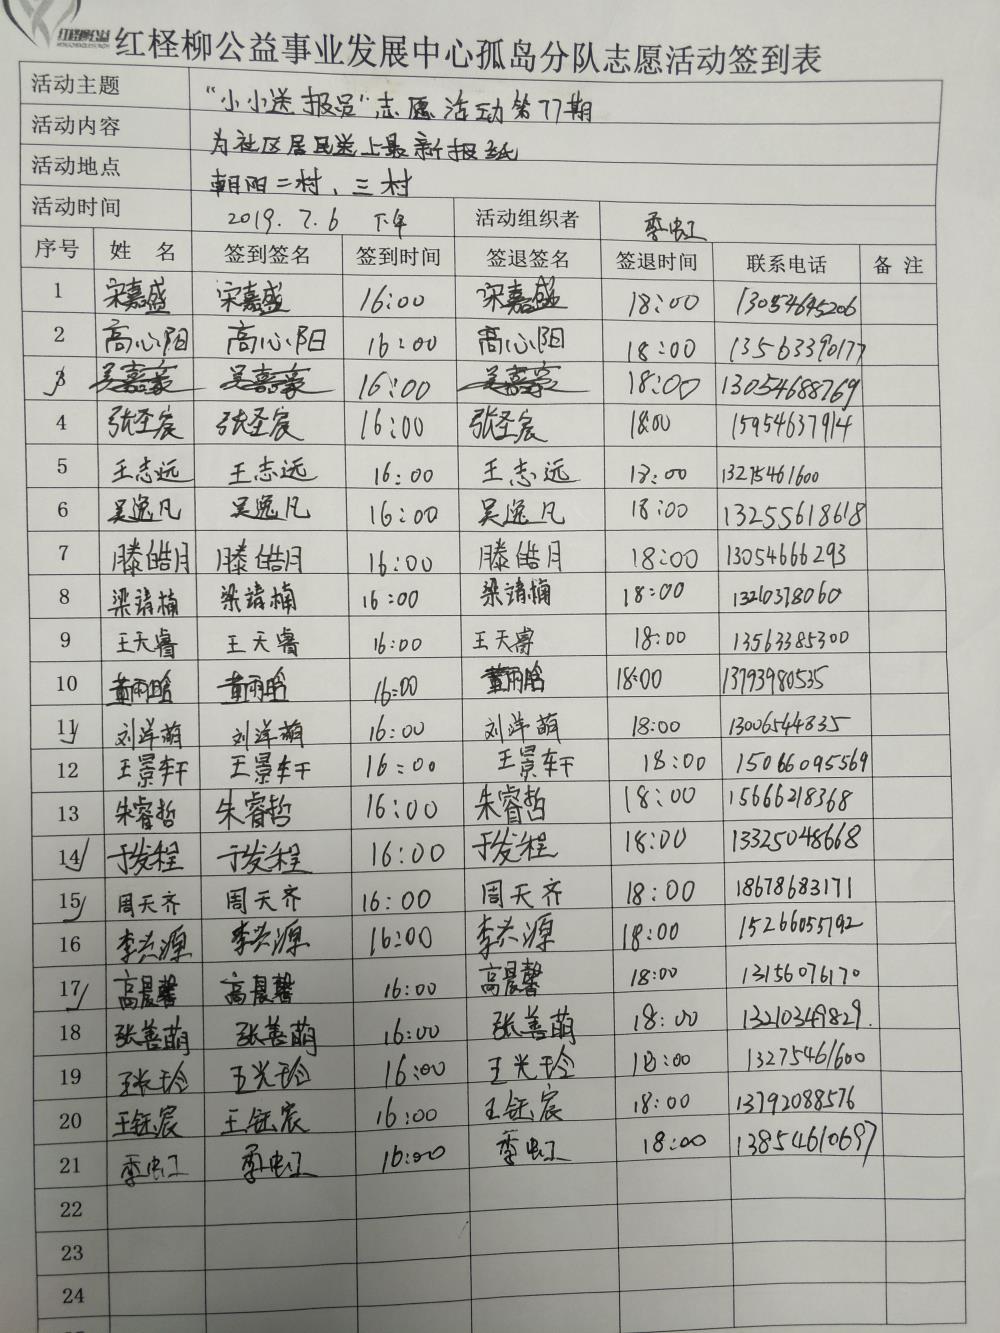 红柽柳公益
红柽柳公益事业发展中心孤岛分队志愿活动签到表
活动主题 “小小送报员”志愿活动第77期
活动内容 为社区居民送上最新报纸
活动地点 朝阳二村、三村
活动时间 2019.7.6 下午 活动组织者 季虹
序号 姓 名 签到签名 签到时间 签退签名 签退时间 联系电话 备 注
1 宋嘉盛 宋嘉盛 16:00 宋嘉盛 18:00 13054645206
2 高心阳 高心阳 16:00 高心阳 18:00 13563390177
3 吴嘉豪 吴嘉豪 16:00 吴嘉豪 18:00 13054688769
4 张圣宸 张圣宸 16:00 张圣宸 18:00 15954637914
5 王志远 王志远 16:00 王志远 18:00 13275461600
6 吴逸凡 吴逸凡 16:00 吴逸凡 18:00 13255618618
7 滕皓月 滕皓月 16:00 滕皓月 18:00 13054666293
8 梁靖楠 梁靖楠 16:00 梁靖楠 18:00 13210378060
9 王天睿 王天睿 16:00 王天睿 18:00 13563385300
10 黄雨晗 黄雨晗 16:00 黄雨晗 18:00 13793980535
11 刘洋萌 刘洋萌 16:00 刘洋萌 18:00 13006544835
12 王景轩 王景轩 16:00 王景轩 18:00 15066095569
13 朱睿哲 朱睿哲 16:00 朱睿哲 18:00 15666218368
14 于发程 于发程 16:00 于发程 18:00 13325048668
15 周天齐 周天齐 16:00 周天齐 18:00 18678683171
16 李兴源 李兴源 16:00 李兴源 18:00 15266055792
17 高晨馨 高晨馨 16:00 高晨馨 18:00 13156076170
18 张善萌 张善萌 16:00 张善萌 18:00 13210349829
19 王光玲 王光玲 16:00 王光玲 18:00 13275461600
20 王钰宸 王钰宸 16:00 王钰宸 18:00 13792088576
21 季虹 季虹 16:00 季虹 18:00 13854610697
22
23
24